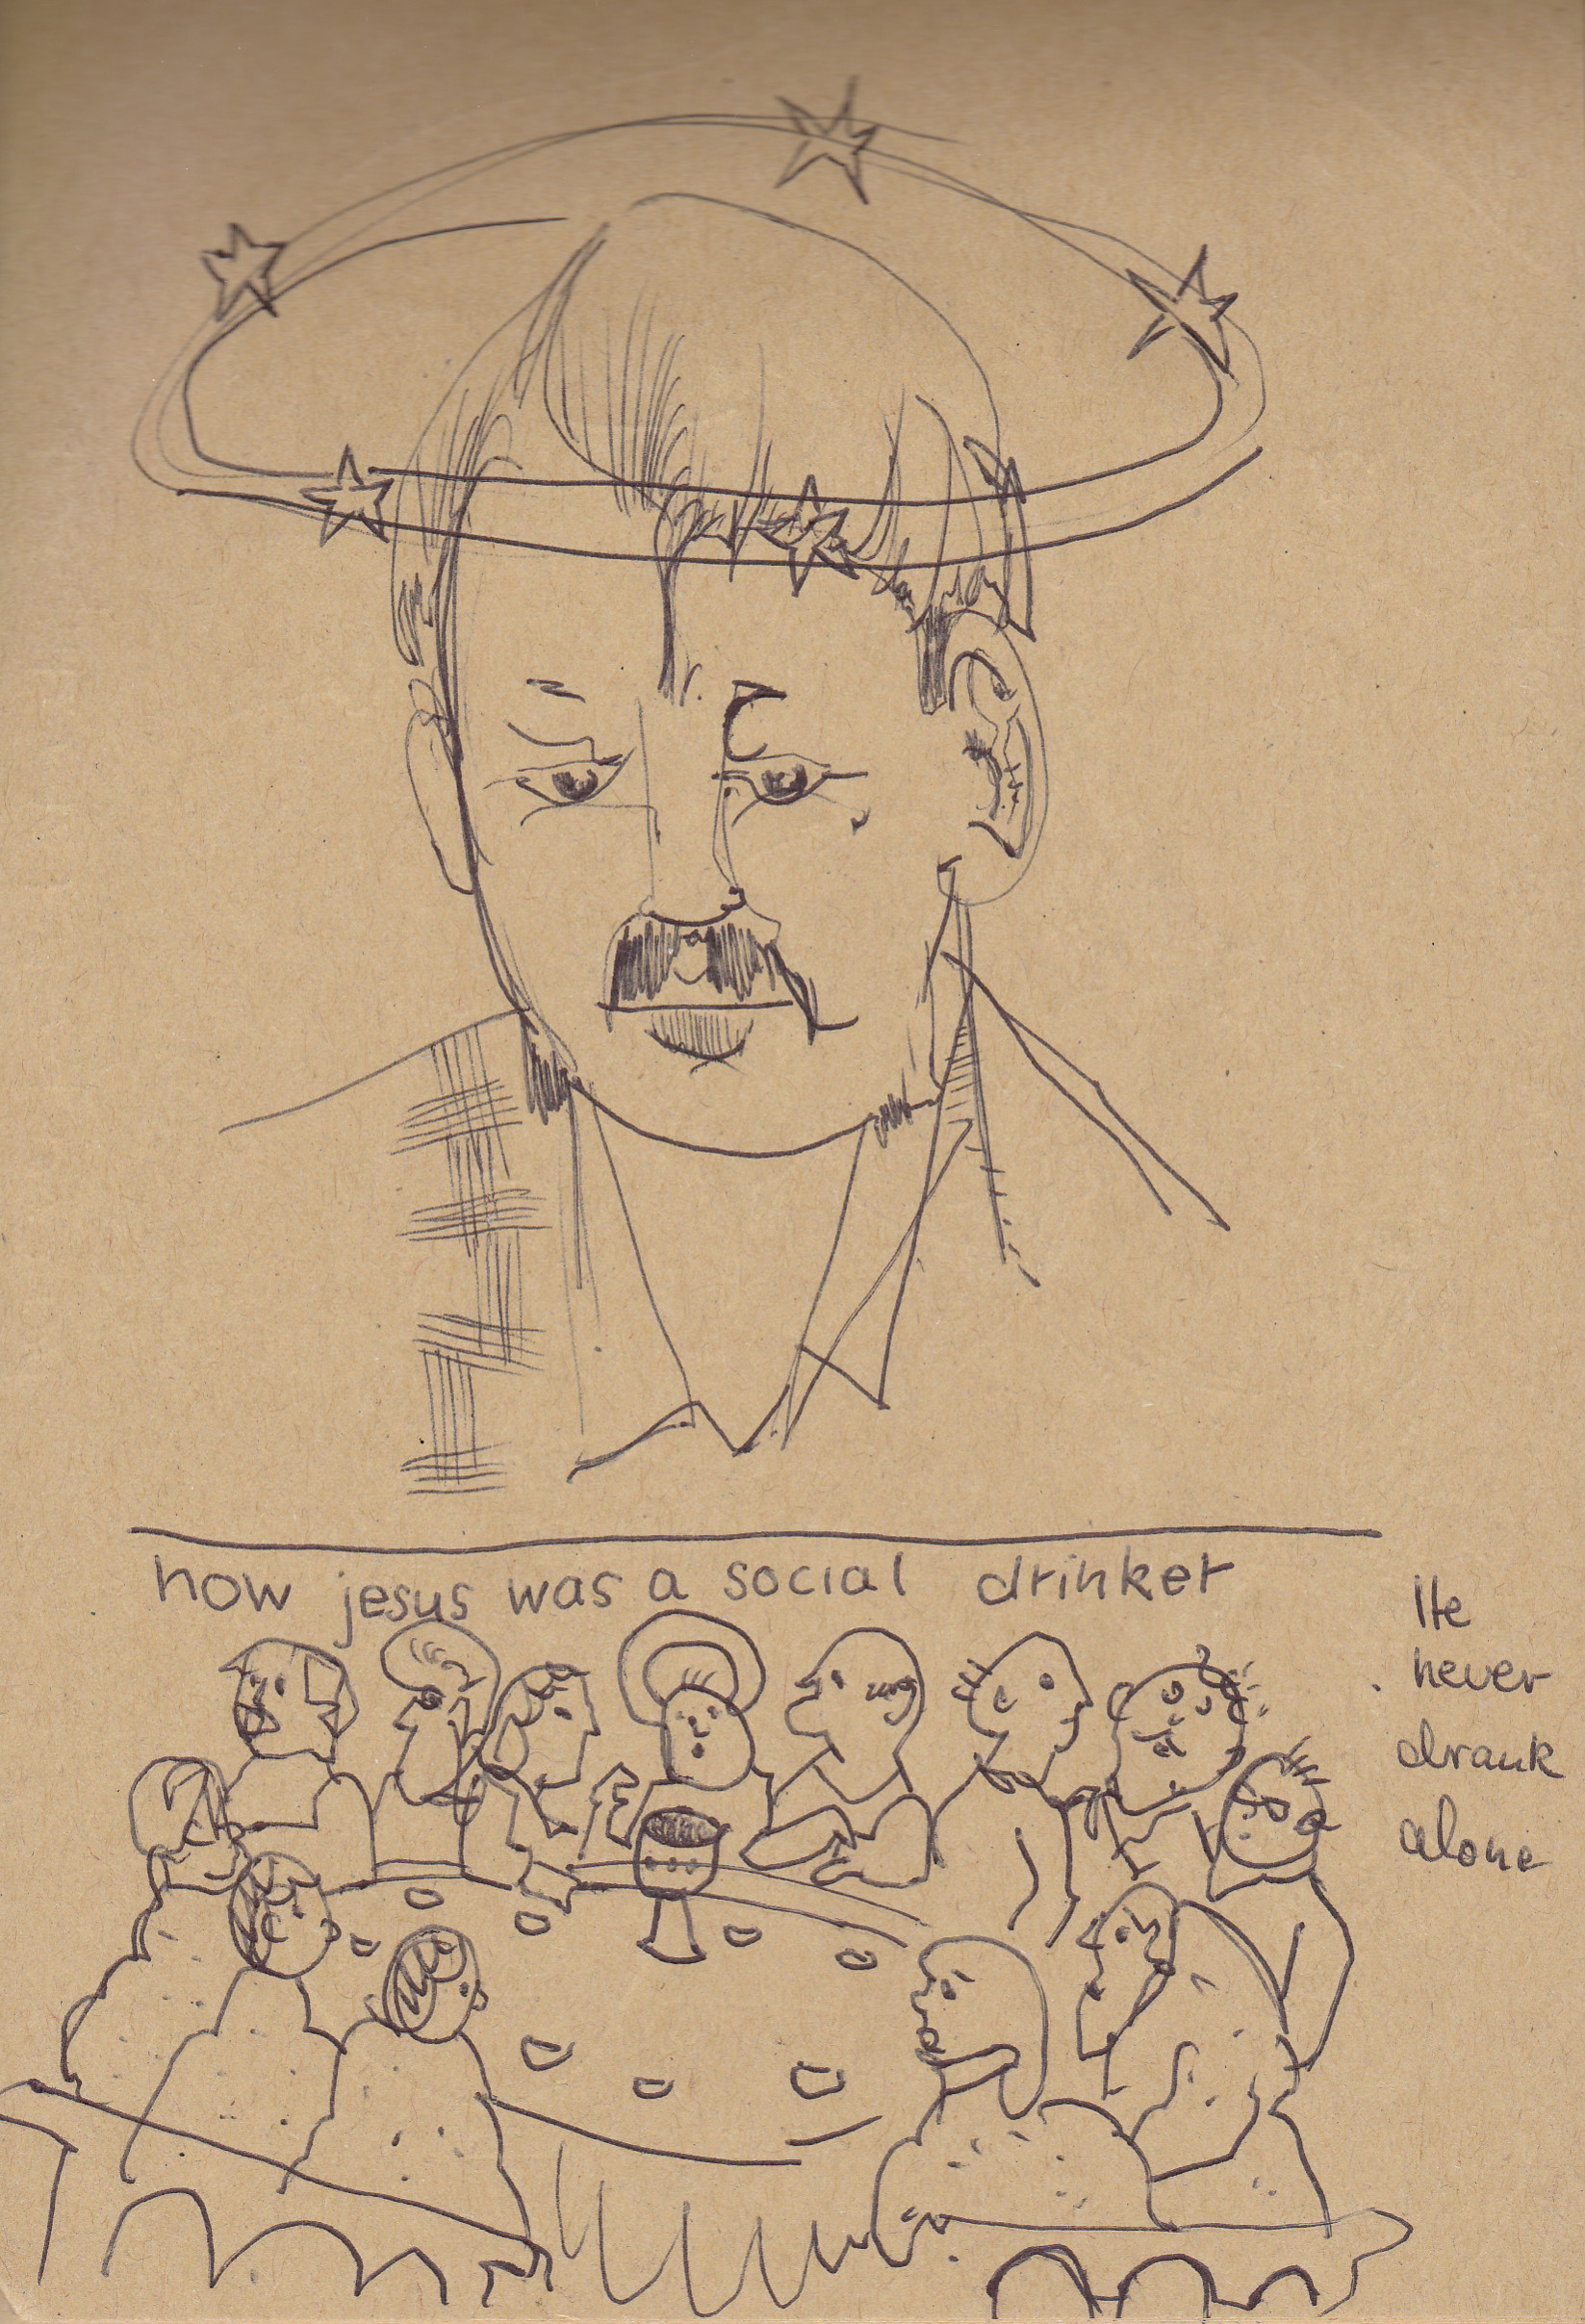 how jesus was a social drinker
He
never
drank
alone